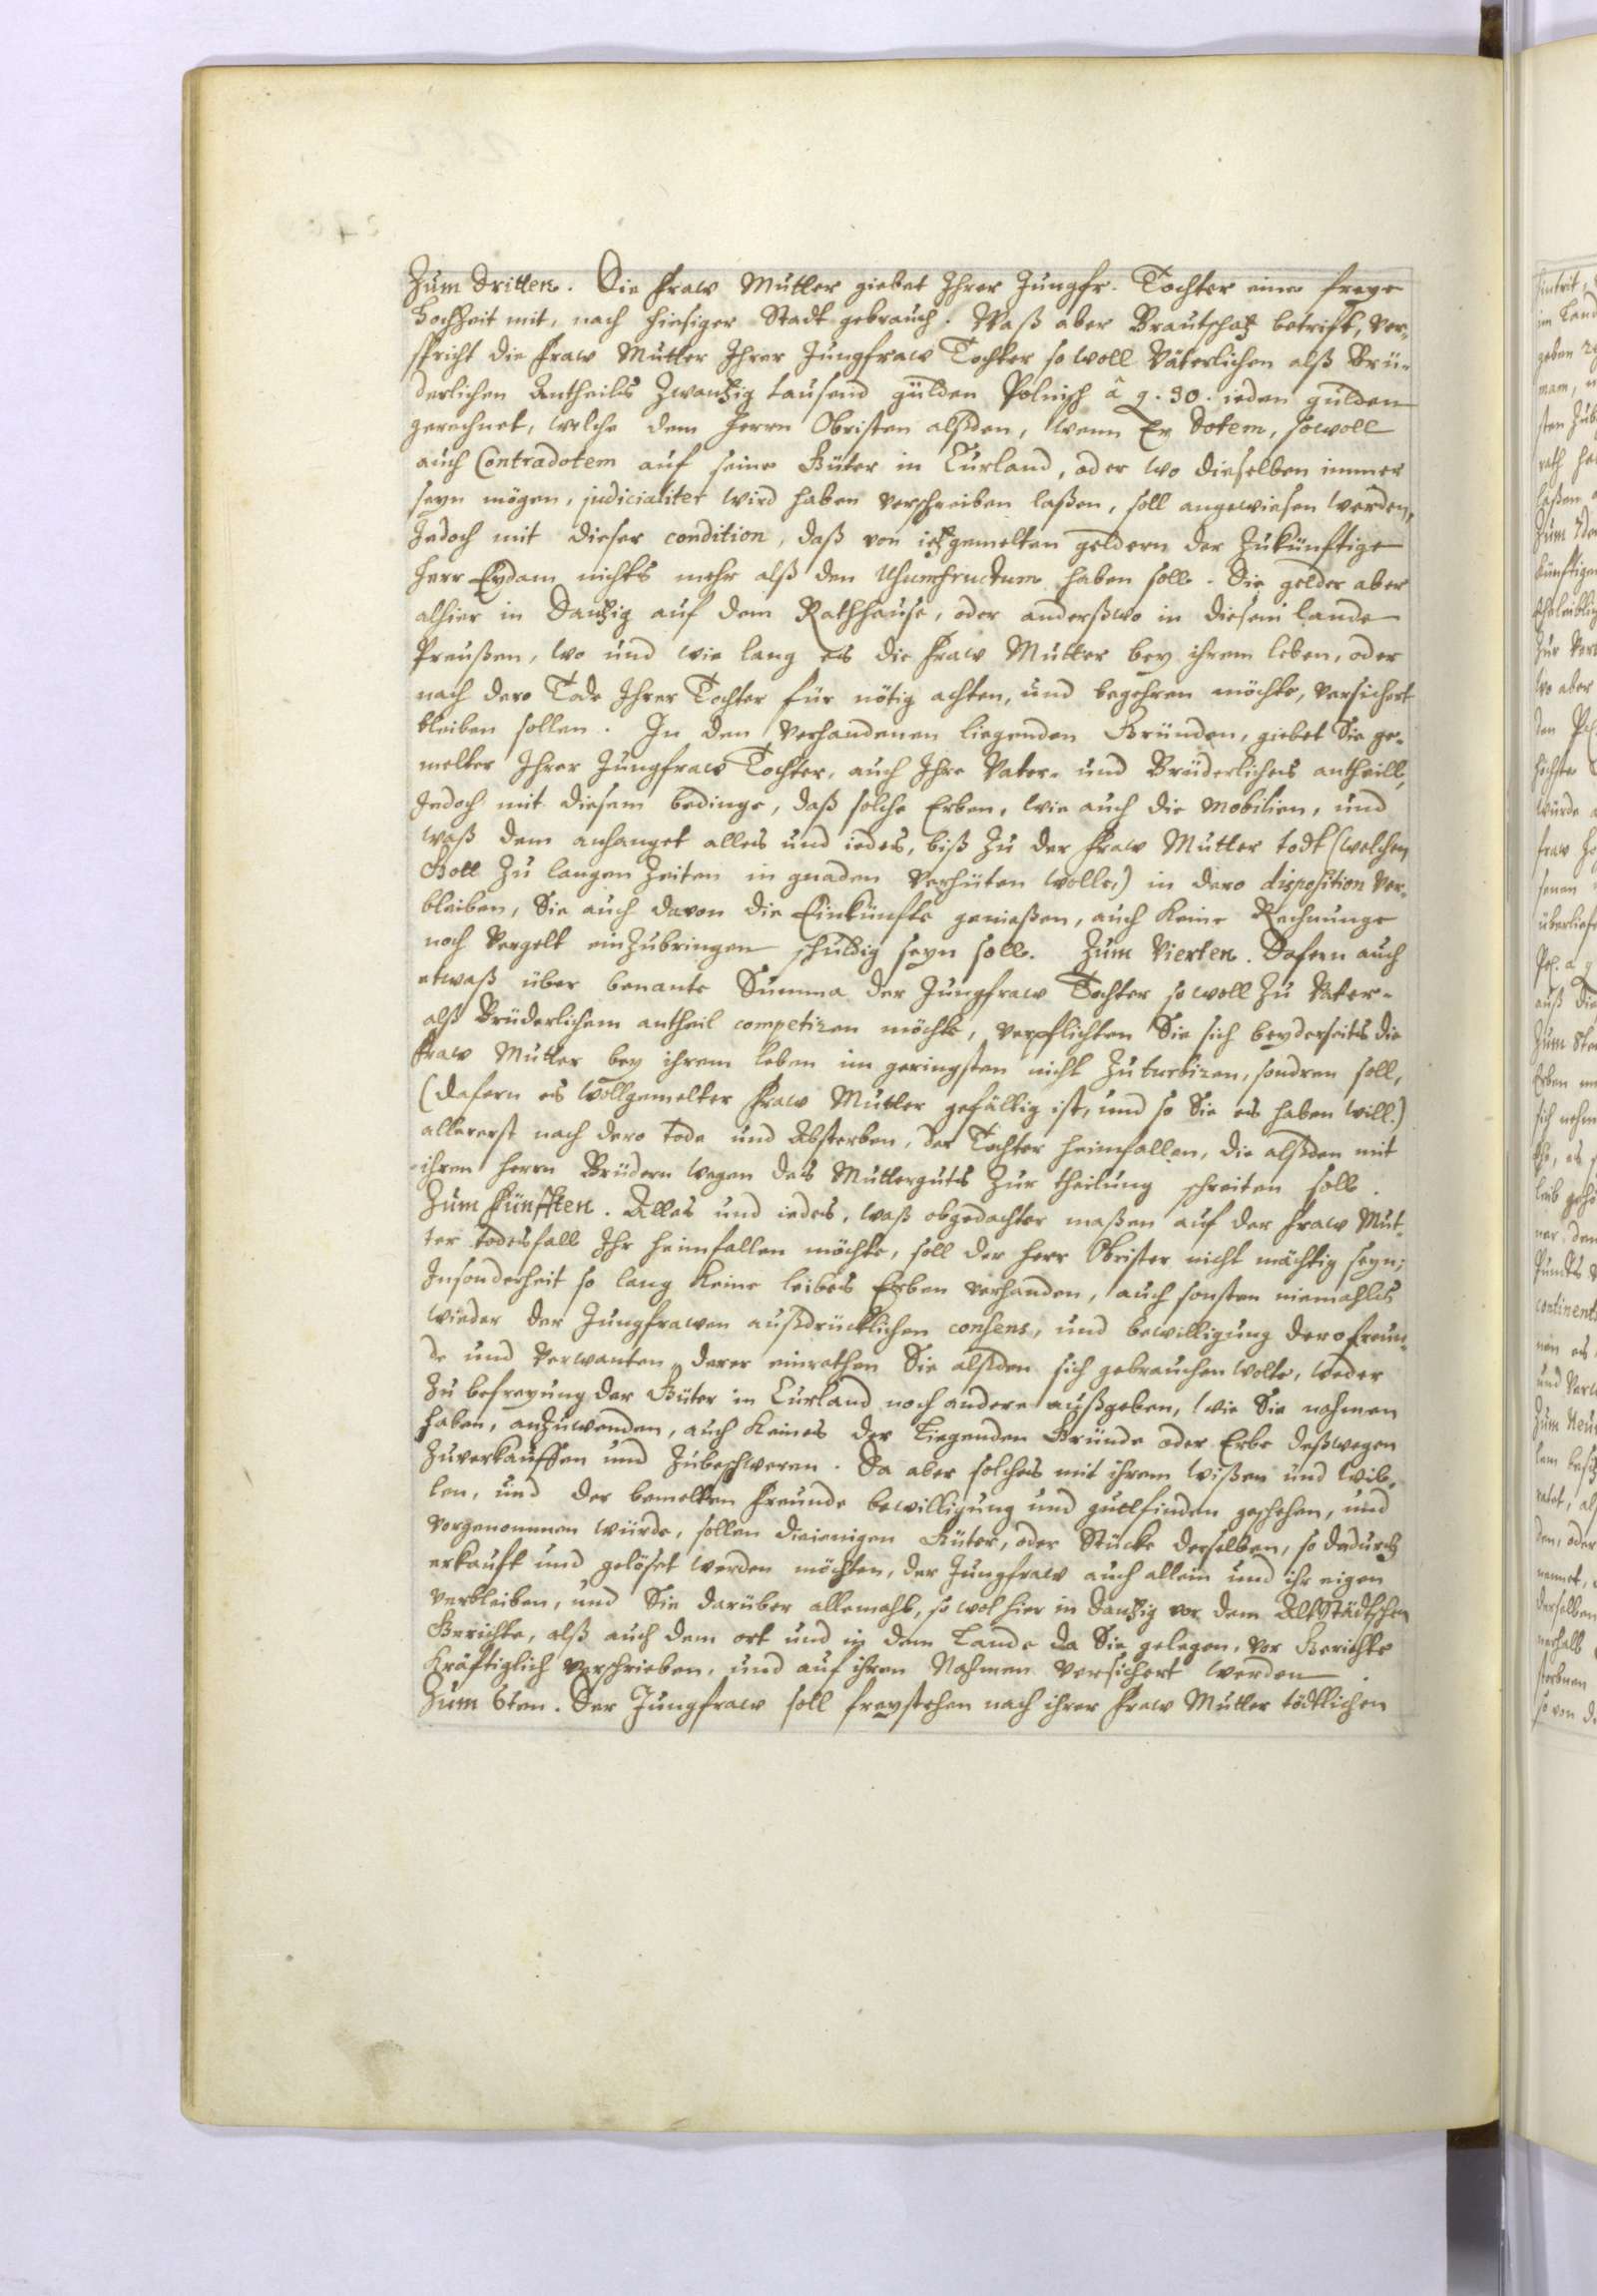 Zum dritten. Die Fraw Mutter giebet Ihrer Jungfr. Tochter eine freye
Hochzeit mit, nach hiesiger Stadt gebrauch. Waß aber Brautschatz betrift, ver-
spricht die Fraw Mutter Ihrer Jungfraw Tochter so woll Väterlichen alß Brü-
derlichen Antheils Zwantzig tausend gülden Polnisch â g. 30. ieden gülden
gerechnet, welche dem Herrn Obristen alßden, wenn Er Dotem, sowoll
auch Contradotem auf seine Güter in Curland, oder wo dieselben immer
seyn mögen, judicialiter wird haben verschreiben laßen, soll angewiesen werden,
Jedoch mit dieser condition, daß von ietzgemelten geldern der Zukünftige
Herr Eydam nichts mehr alß den Usumfructum haben soll. Die gelder aber
alhier in Dantzig auf dem Rathhause, oder anderßwo in diesem lande
Preußen, wo und wie lang es die Fraw Mutter bey ihrem leben, oder
nach dero Tode Ihrer Tochter für nötig achten, und begehren möchte, versichert
bleiben sollen. In den verhandenen liegenden Gründen, giebet Sie ge-
melter Ihrer Jungfraw Tochter, auch Ihre Vater- und Brüderliches antheill,
Jedoch mit diesem bedinge, daß solche Erben, wie auch die Mobilien, und
waß dem anhanget alles und iedes, biß zu der Fraw Mutter todt (welchen
Gott zu langen Zeiten in gnaden verhüten wolle,) in dero disposition ver-
bleiben, Sie auch davon die Einkünfte genießen, auch keine Rechnunge
noch Vergelt einzubringen schuldig seyn soll. Zum Vierten. Dafern auch
etwaß über benante Summa der Jungfraw Tochter so woll zu Vater-
alß Brüderlichem antheil competiren möchte, verpflichten Sie sich beyderseits die
Fraw Mutter bey ihrem leben im geringsten nicht zu turbiren, sondren soll,
(dafern es wollgemelter Fraw Mutter gefällig ist, und so Sie es haben will.)
allererst nach dero tode und Absterben, der Tochter heimfallen, die alßden mit
ihren Herrn Brüdern wegen des Mutterguts zur theilung schreiten soll.
Zum Fünfften. Alles und iedes, waß obgedachter maßen auf der Fraw Mut-
ter todesfall Ihr heimfallen möchte, soll der Herr Obrister nicht mächtig seyn;
Insonderheit so lang keine leibes Erben verhanden, auch sonsten niemahls
wieder der Jungfrawen außdrücklichen consens, und bewilligung dero freun-
de und Verwanten, derer einrathen Sie alßden sich gebrauchen wolte, weder
zu befreyung der Güter in Curland noch andere außgeben, wie Sie nahmen
haben, anzuwenden, auch keines der Liegenden Gründe oder Erbe deßwegen
zuverkauffen und zubeschweren. Da aber solches mit ihrem wißen und wil-
len, und der bemelten Freunde bewilligung und guttfinden geschehen, und
vorgenommen würde, sollen dieienigen Güter, oder Stücke derselben, so dadurch
erkauft und gelöset werden möchten, der Jungfraw auch allein und ihr eigen
verbleiben, und Sie darüber allemahl, so wol hier in Dantzig vor dem AltStädtschen
Gerichte, alß auch dem ort und in dem Lande da Sie gelegen, vor Gerichte
kräftiglich verschrieben, und auf ihren Nahmen versichert werden.
Zum 6ten. Der Jungfraw soll freystehen nach ihrer Fraw Mutter tödtlichen